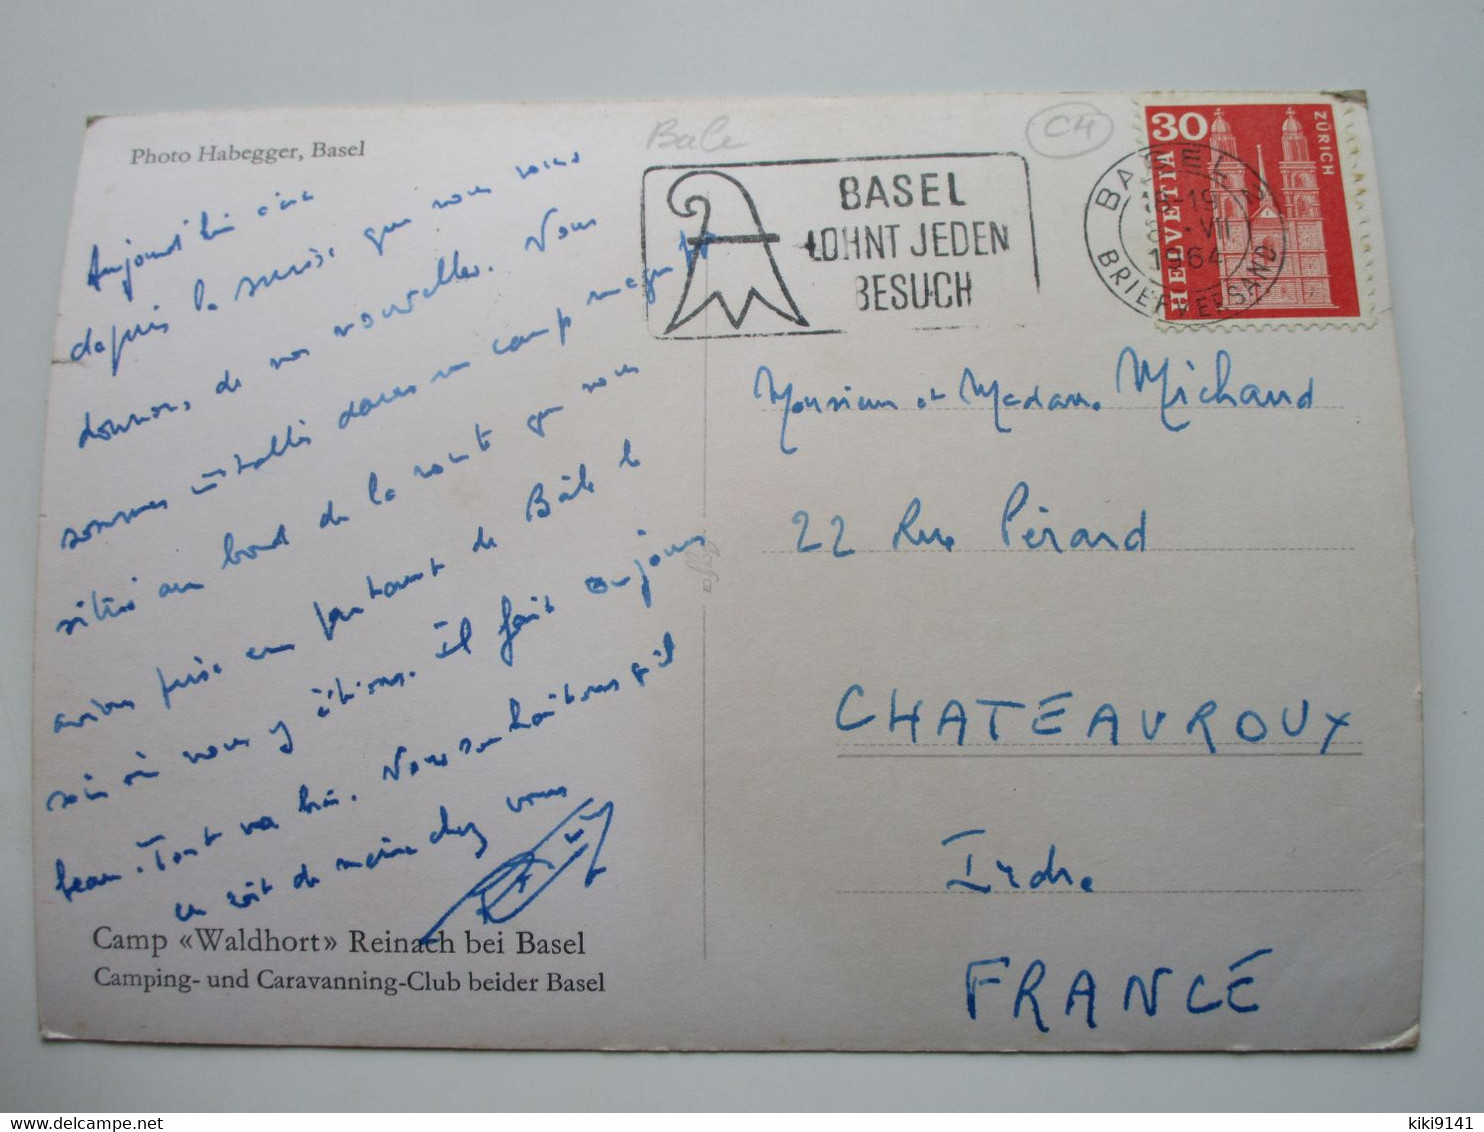 Photo Habegger, Basel
Bale
CH
BASEL
LOHNT JEDEN
BESUCH
30
HELVETIA
ZÜRICH
BASEL
18-19
VII
1964
BRIEFVERSAND
Aujourd'hui
depuis la Suisse que nous vous
donnons de nos nouvelles. Nous
sommes installés dans un camp magnif
situé au bord de la route que nous
avions prise en partant de Bâle le
soir où nous y étions. Il fait toujours
beau. Tout va bien. Nous souhaitons qu'il
en soit de même chez vous
Camp «Waldhort» Reinach bei Basel
Camping- und Caravanning-Club beider Basel
Monsieur et Madame Michaud
22 Rue Pérard
CHATEAUROUX
Indre
FRANCE
kiki9141